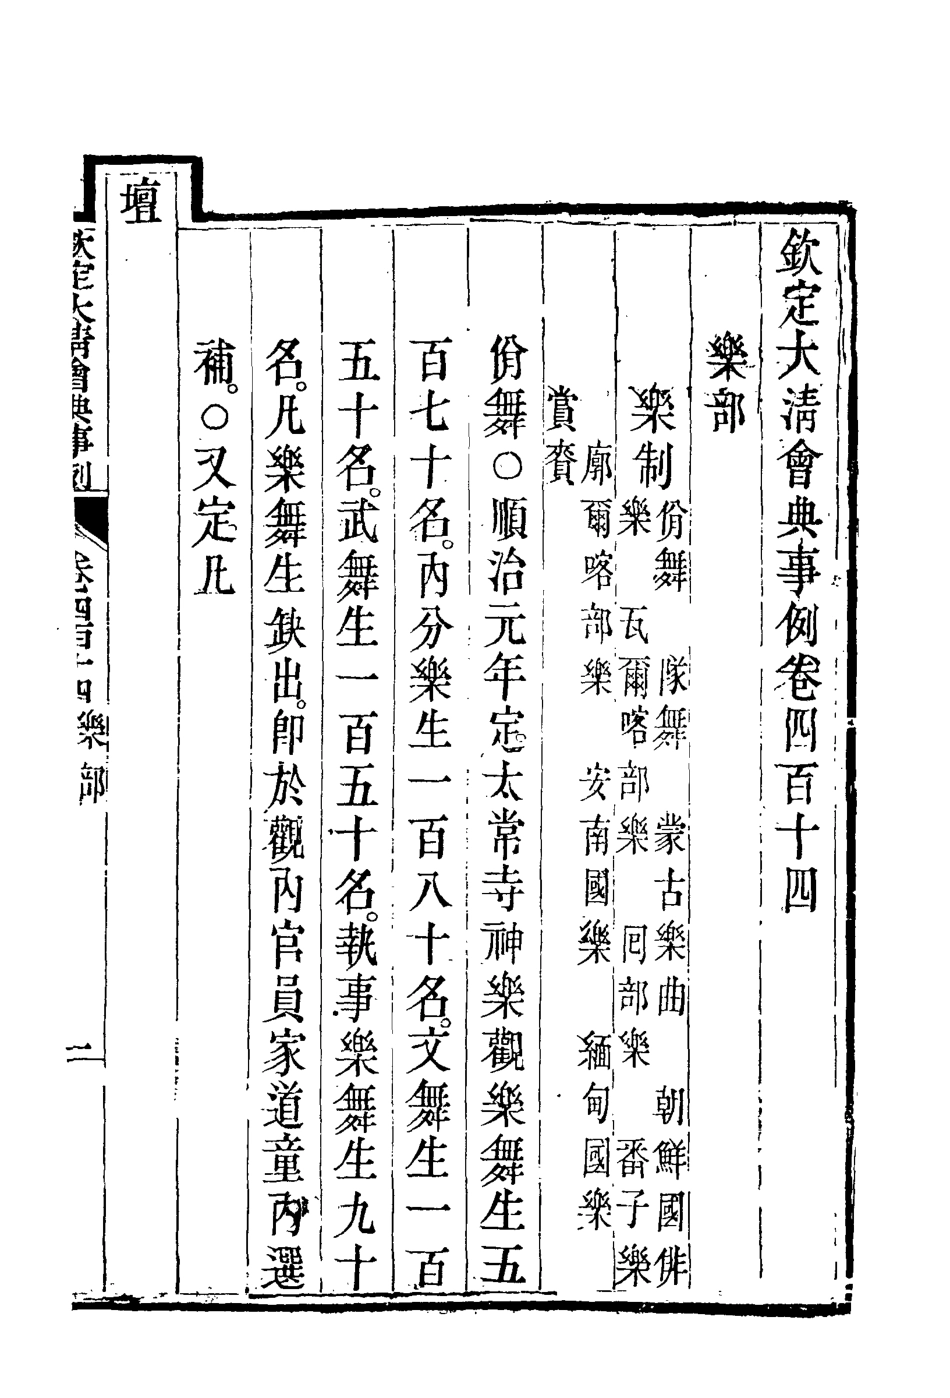 欽定大淸會典事例卷四百十四
樂部
樂制 佾舞 隊舞 蒙古樂曲 朝鮮國俳
樂 瓦爾喀部樂 囘部樂 番子樂
廓爾喀部樂 安南國樂 緬甸國樂
賞賚
佾舞〇順治元年定。太常寺神樂觀樂舞生五
百七十名。內分樂生一百八十名。文舞生一百
五十名。武舞生一百五十名。執事樂舞生九十
名。凡樂舞生缺出。卽於觀內官員家道童內選
補。〇又定。凡
壇
欽定大淸會典事例 卷四百十四 樂部 一